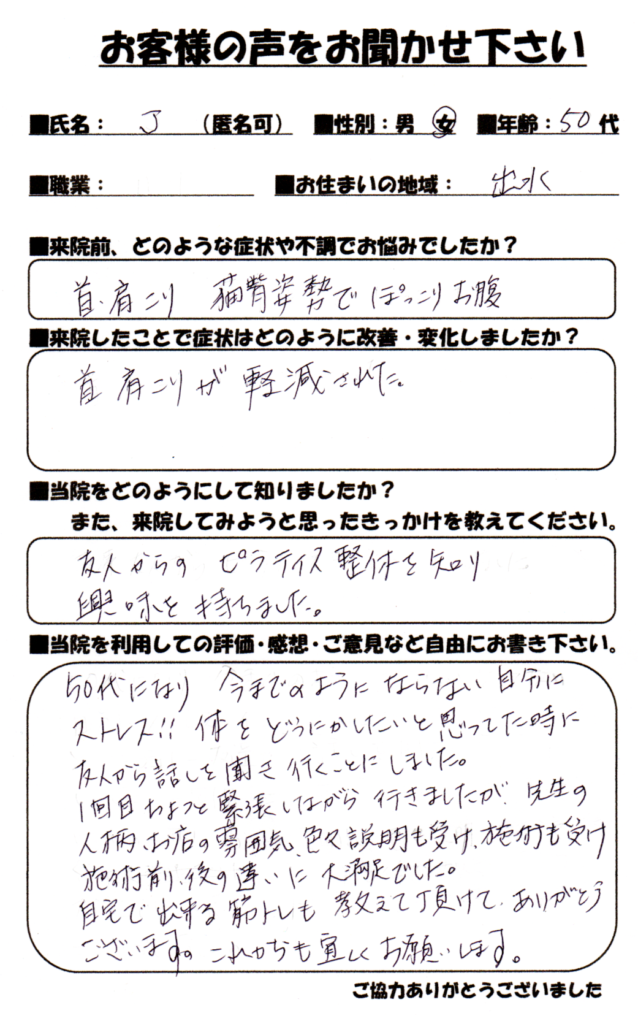 お客様の声をお聞かせ下さい
■氏名： J （匿名可） ■性別：男 女 ■年齢：50代
■職業： ■お住まいの地域： 出水
■来院前、どのような症状や不調でお悩みでしたか？
首、肩こり 猫背姿勢で ぽっこりお腹
■来院したことで症状はどのように改善・変化しましたか？
首肩こりが軽減された。
■当院をどのようにして知りましたか？
また、来院してみようと思ったきっかけを教えてください。
友人からの ピラティス整体を知り
興味を持ちました。
■当院を利用しての評価・感想・ご意見など自由にお書き下さい。
50代になり 今までのように ならない自分に
ストレス!! 体をどうにかしたいと思ってた時に
友人から話しを聞き行くことにしました。
1回目ちょっと緊張しながら行きましたが、先生の
人柄、お店の雰囲気、色々説明も受け、施術も受け
施術前、後の違いに大満足でした。
自宅で出来る筋トレも教えて頂けて、ありがとう
ございます。これからも宜しくお願いします。
ご協力ありがとうございました